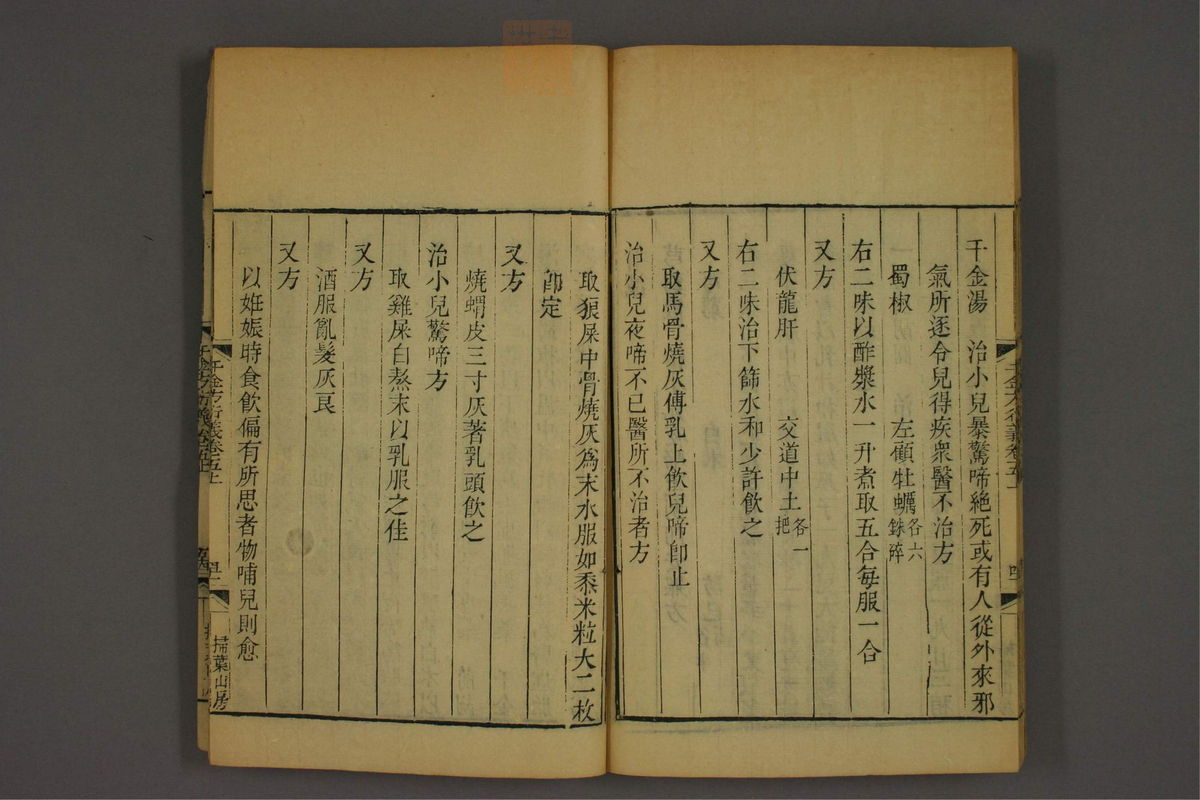 千金湯　治小兒暴驚啼絕死或有人從外來邪
氣所逐令兒得疾衆醫不治方
蜀椒　左顧牡蠣各六銖碎
右二味以酢漿水一升煮取五合每服一合
又方
伏龍肝　交道中土各一把
右二味治下篩水和少許飲之
又方
取馬骨燒灰傅乳上飲兒啼卽止
治小兒夜啼不已醫所不治者方
取狼屎中骨燒灰爲末水服如黍米粒大二枚
卽定
又方
燒蝟皮三寸灰著乳頭飲之
治小兒驚啼方
取雞屎白熬末以乳服之佳
又方
酒服亂髮灰良
又方
以姙娠時食飲偏有所思者物哺兒則愈
千金方衍義卷五上
掃葉山房